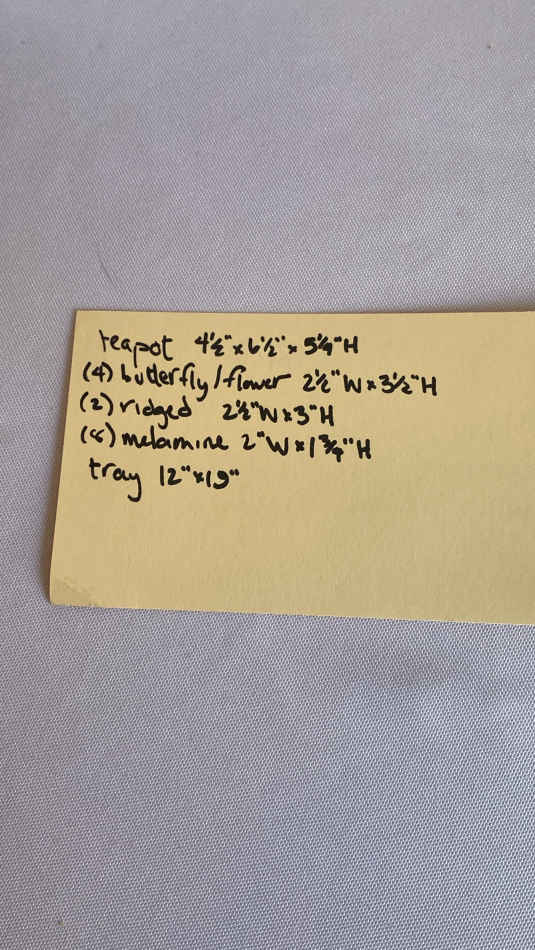 teapot 4½" x 6½" x 5¼" H
(4) butterfly/flower 2½" W x 3½" H
(2) ridged 2½" W x 3" H
(8) melamine 2" W x 1¾" H
tray 12" x 19"